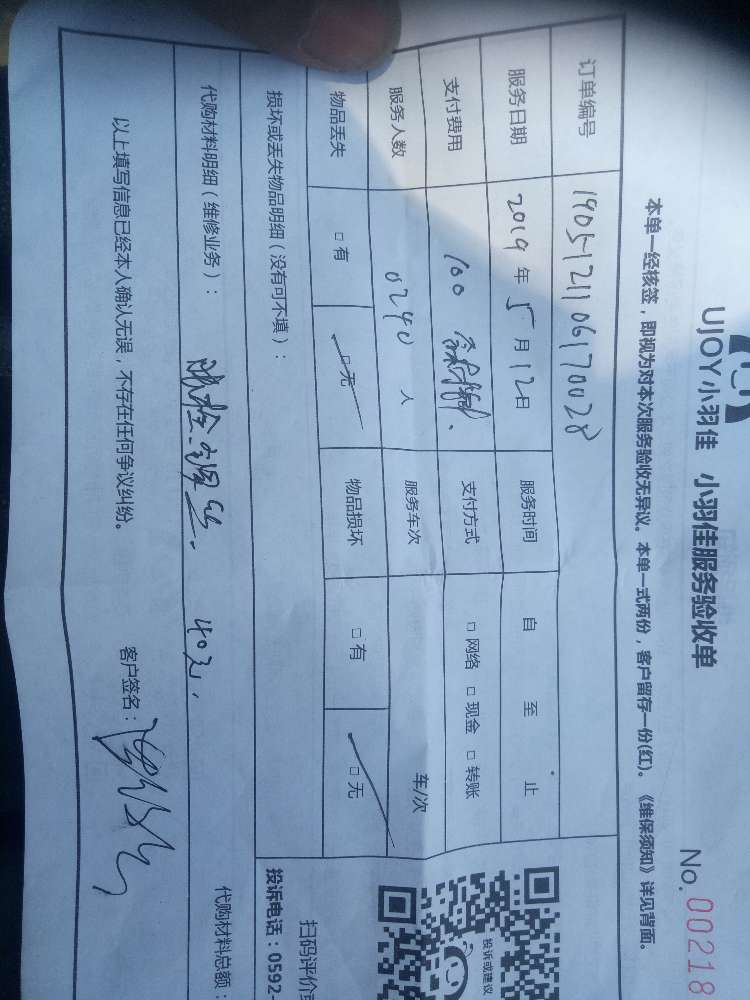 UJOY小羽佳 小羽佳服务验收单
No. 00218
本单一经核签，即视为对本次服务验收无异议。本单一式两份，客户留存一份(红)。《维保须知》详见背面。
订单编号 1905121106170028
服务日期 2019年5月12日 服务时间 自 至 止
支付费用 100 支付方式 □网络 □现金 □转账
服务人数 0240 人 服务车次 车/次
物品丢失 □有 □无 物品损坏 □有 □无
损坏或丢失物品明细（没有可不填）：
代购材料明细（维修业务）： 40元.
代购材料总额：
以上填写信息已经本人确认无误，不存在任何争议纠纷。 客户签名：
投诉或建议
扫码评价
投诉电话：0592-